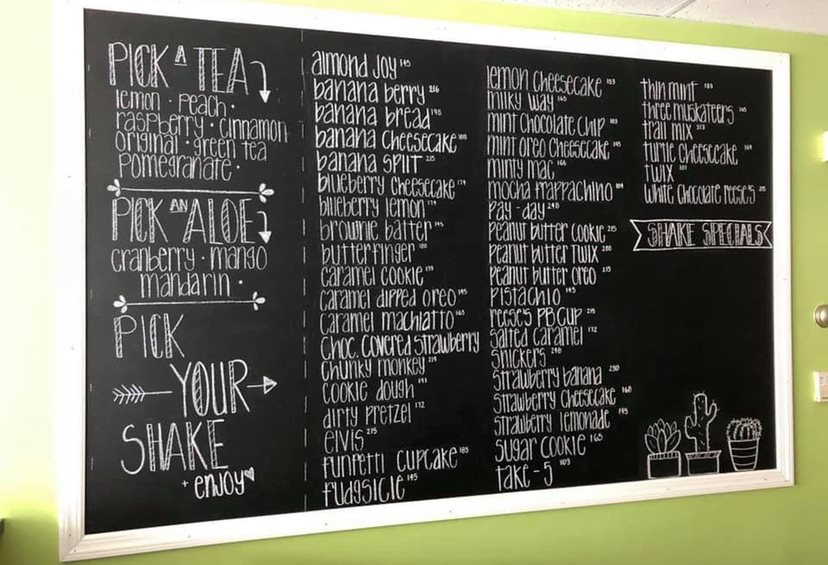 PICK A TEA
lemon · peach ·
raspberry · cinnamon
original · green tea
pomegranate ·
PICK AN ALOE
cranberry · mango
mandarin ·
PICK
YOUR
SHAKE
+ enjoy
almond joy
banana berry 216
banana bread
banana cheesecake
banana split
blueberry cheesecake
blueberry lemon
brownie batter
butterfinger
caramel cookie
caramel dipped oreo
caramel machiatto
choc. covered strawberry
chunky monkey
cookie dough
dirty pretzel
elvis 215
funfetti cupcake
fudgsicle
lemon cheesecake
milky way
mint chocolate chip
mint oreo cheesecake
minty mac
mocha frappachino
pay-day 248
peanut butter cookie
peanut butter twix
peanut butter oreo
pistachio
reese's pb cup
salted caramel
snickers
strawberry banana
strawberry cheesecake
strawberry lemonade
sugar cookie 165
take-5
thin mint
three muskateers
trail mix
turtle cheesecake
twix
white chocolate reese's
SHAKE SPECIALS